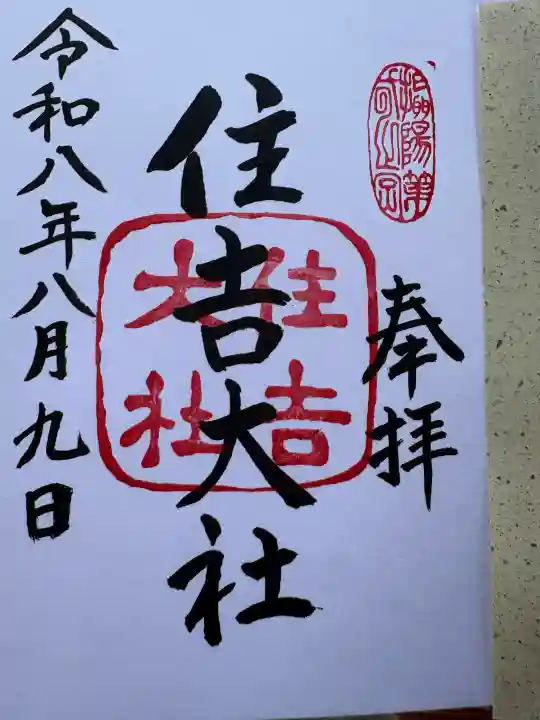 奉拝
住吉大社
住吉大社
令和八年八月九日